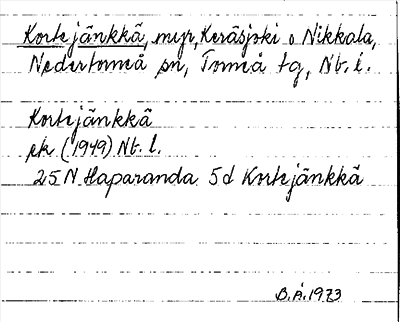 Kortejänkkä, myr, Keräsjoki o Nikkala,
Nedertorneå sn, Torneå tg, Nb. l.
Kortejänkkä
ek (1949) Nb. l.
25 N Haparanda 5d Kortejänkkä
B.Å. 1973